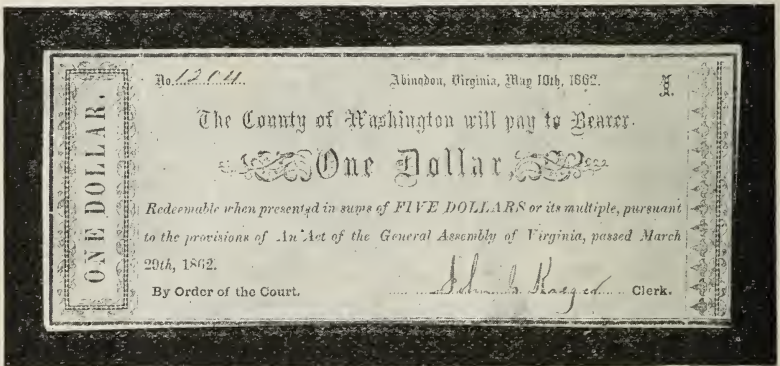 ONE DOLLAR.
No. 1204. Abingdon, Virginia, May 10th, 1862. 1.
The County of Washington will pay to Bearer
One Dollar,
Redeemable when presented in sums of FIVE DOLLARS or its multiple, pursuant
to the provisions of An Act of the General Assembly of Virginia, passed March
29th, 1862.
By Order of the Court. John G. Clerk.